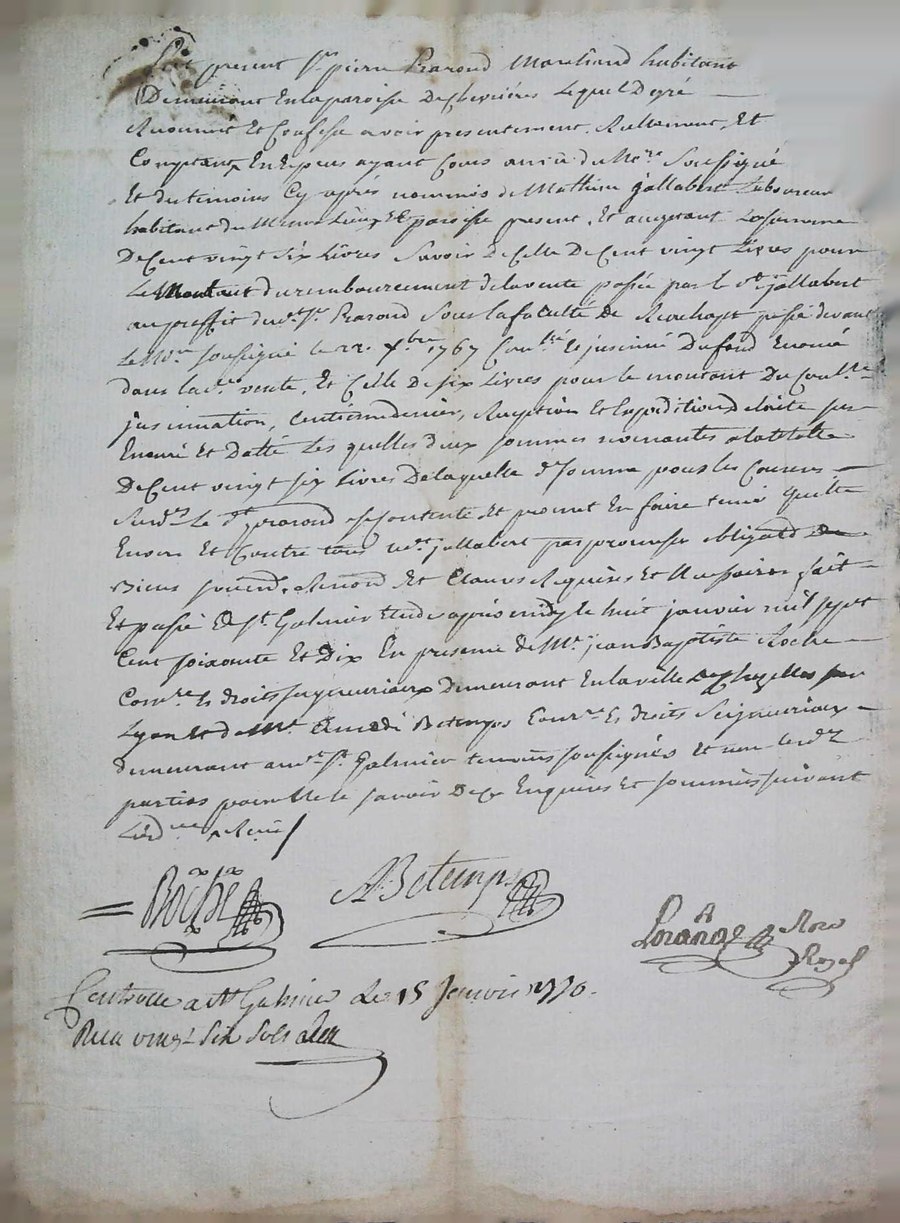 present Sr pierre Ravond Marchand habitant
Demeurant En la paroise De Chevrieres Lequel De gré
Reconnu Et Confesse avoir presentement Rellement Et
Comptant En Especes ayant Cours au vû du Nore Soussigné
Et des temoins Cy après nommés de Mathieu jallabert Laboureur
habitant du Meme Lieux Et paroisse present Et acceptant La somme
De Cent vingt Six Livres Savoir De Celle De Cent vingt Livres pour
Le Montant du remboursement de la vente passée par le dt jallabert
au proffit dud. Sr Ravond Sous la faculté De Reachapt passé devant
Le Nore soussigné le 22 xbre 1767 Conllé Et jnsinué Du fond Enoncé
dans lad. vente, Et Celle De six Livres pour le montant Du Conlle
jnsinuation, Centieme denier, Reception Et Expedition
Enoncé Et Datté Les quelles deux sommes revenantes a la totalle
De Cent vingt six Livres De laquelle Somme pour les Causes
Le dt Ravond Se Contente Et promet En faire tenir quitte
Envers Et Contre tous led. jallabert par promesse obligaon de
Biens Renond Et Clauses Requises Et Necessaires fait
Et passé a St. Galmier Etude après midy le huit janvier mil sept
Cent soixante Et Dix En presence de Mr. jean Baptiste Roche
Comre Es droits seigneuriaux Demeurant En la ville de Chazelles sur
Lyon Et de Mr. Amedé Betemps Comre Es droits Seigneuriaux
demeurant aud. St. Galmier temoins soussignés Et non les d.
parties pour ne le savoir De Ce Enquises Et sommées suivant
Roche
ABetemps
Lorange Nore
Royal
Controllé a St Galmier Le 15 Janvier 1770.
Reçu vingt six sols